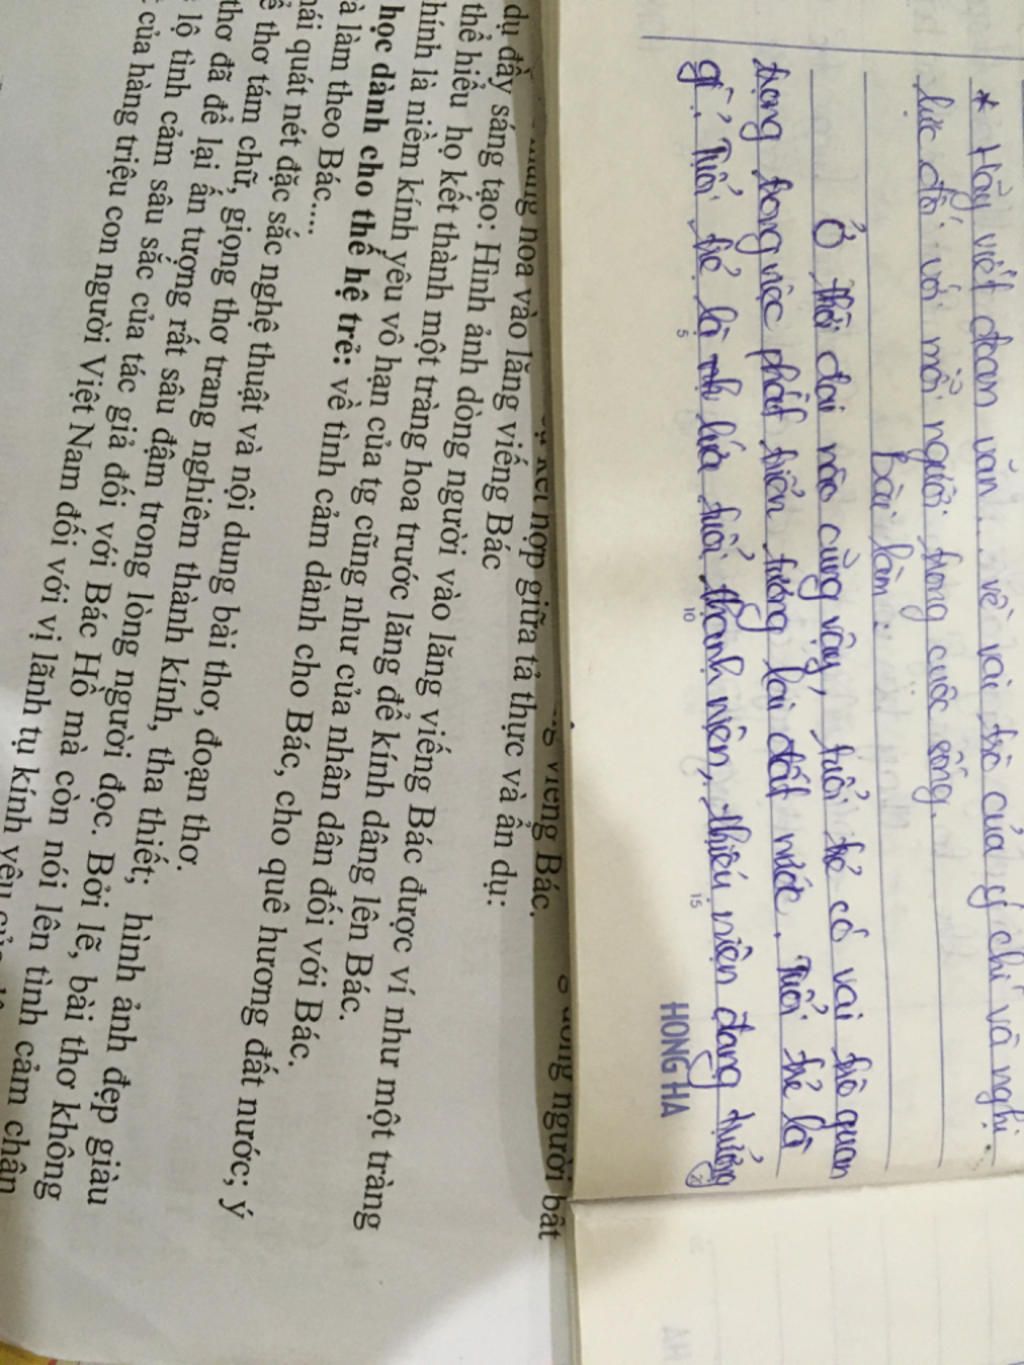 * Hãy viết đoạn văn về vai trò của ý chí và nghị
lực đối với mỗi người trong cuộc sống.
Bài làm:
Ở thời đại nào cũng vậy, tuổi trẻ có vai trò quan
trọng trong việc phát triển tương lai đất nước. Tuổi trẻ là
gì? Tuổi trẻ là lứa tuổi thanh niên, thiếu niên đang trưởng
5 10 15
HONG HA
viếng Bác. dòng người bất
kết hợp giữa tả thực và ẩn dụ:
hoa vào lăng viếng Bác
dụ đầy sáng tạo: Hình ảnh dòng người vào lăng viếng Bác được ví như một tràng
thể hiểu họ kết thành một tràng hoa trước lăng để kính dâng lên Bác.
hính là niềm kính yêu vô hạn của tg cũng như của nhân dân đối với Bác.
học dành cho thế hệ trẻ: về tình cảm dành cho Bác, cho quê hương đất nước; ý
à làm theo Bác....
hái quát nét đặc sắc nghệ thuật và nội dung bài thơ, đoạn thơ.
ể thơ tám chữ, giọng thơ trang nghiêm thành kính, tha thiết; hình ảnh đẹp giàu
thơ đã để lại ấn tượng rất sâu đậm trong lòng người đọc. Bởi lẽ, bài thơ không
lộ tình cảm sâu sắc của tác giả đối với Bác Hồ mà còn nói lên tình cảm chân
của hàng triệu con người Việt Nam đối với vị lãnh tụ kính yêu